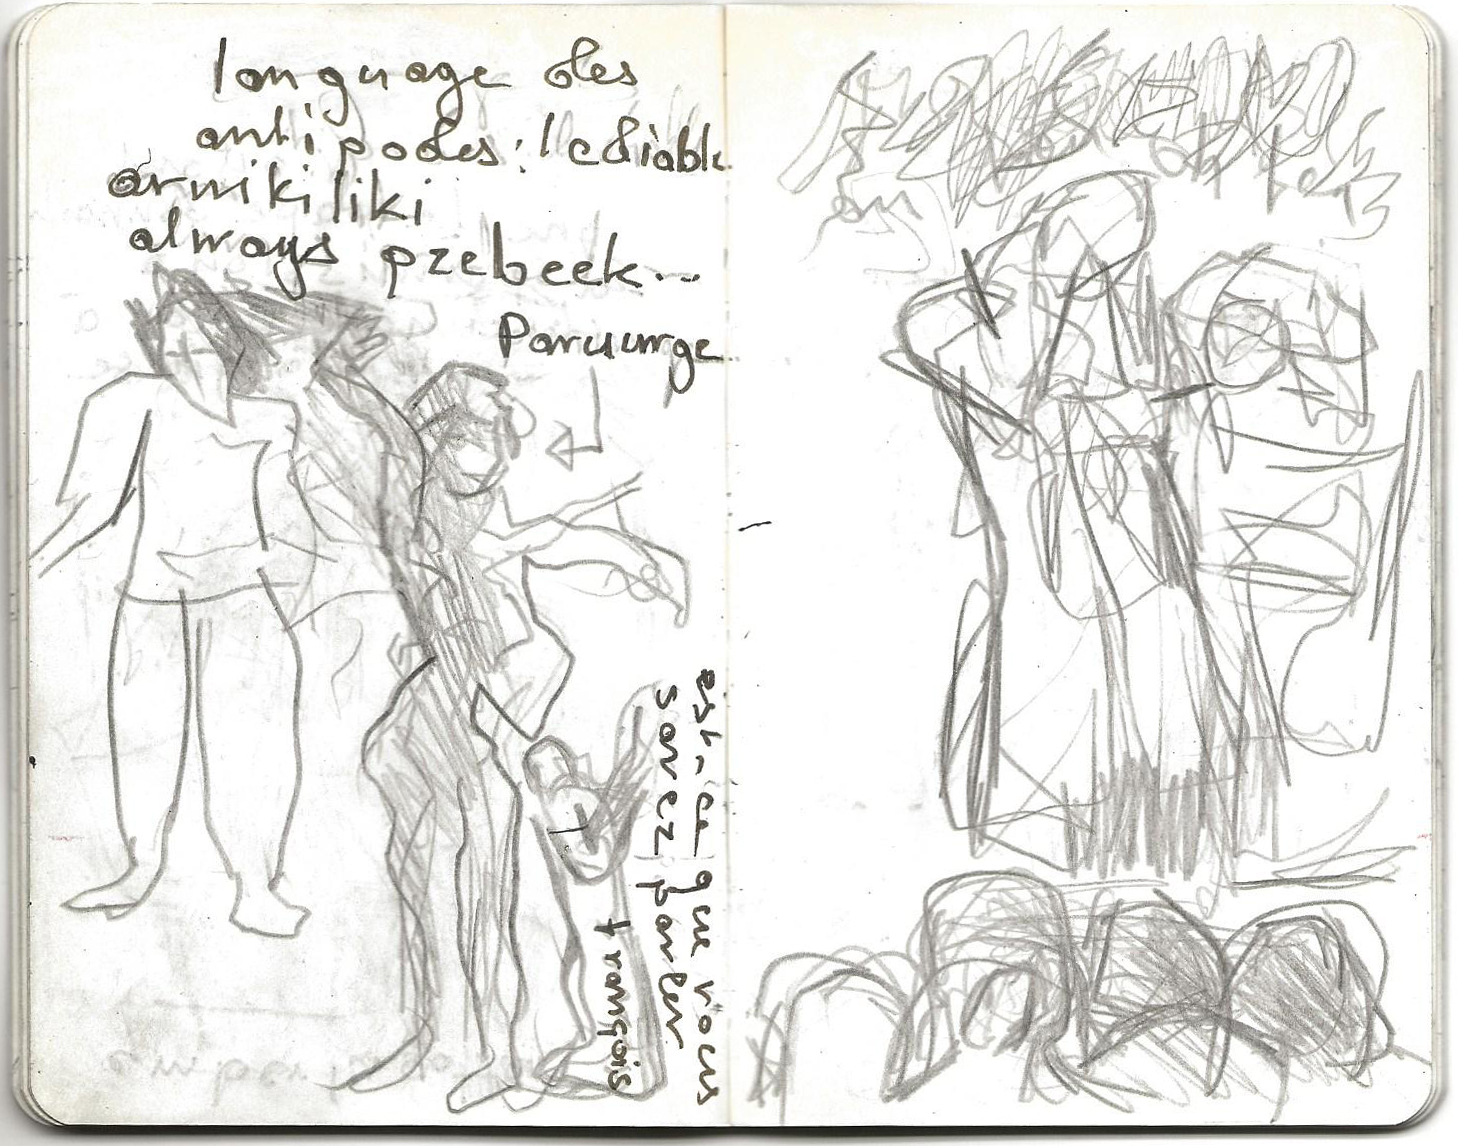 language des
antipodes : le diable
arnikiliki
always pzebeek...
Panurge
est-ce que vous
savez parler
français